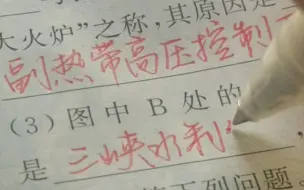 大火炉”之称,其原因是
副热带高压控制
(3)图中 B 处的
是 三峡水利
下列问题